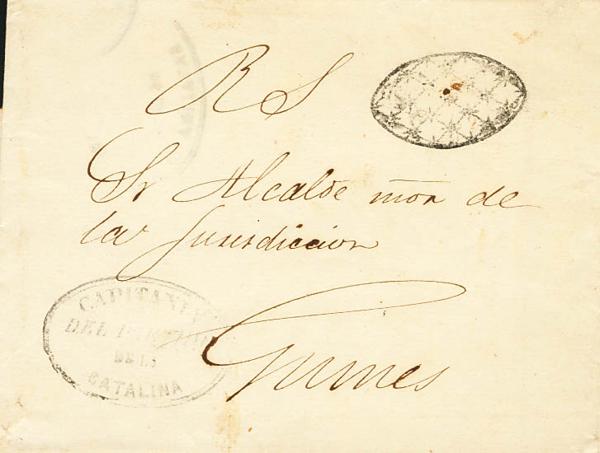 R S
Sr Alcalde mor de
la Jurisdiccion
Guines
CAPITANIA
DEL PARTIDO
DE LA
CATALINA